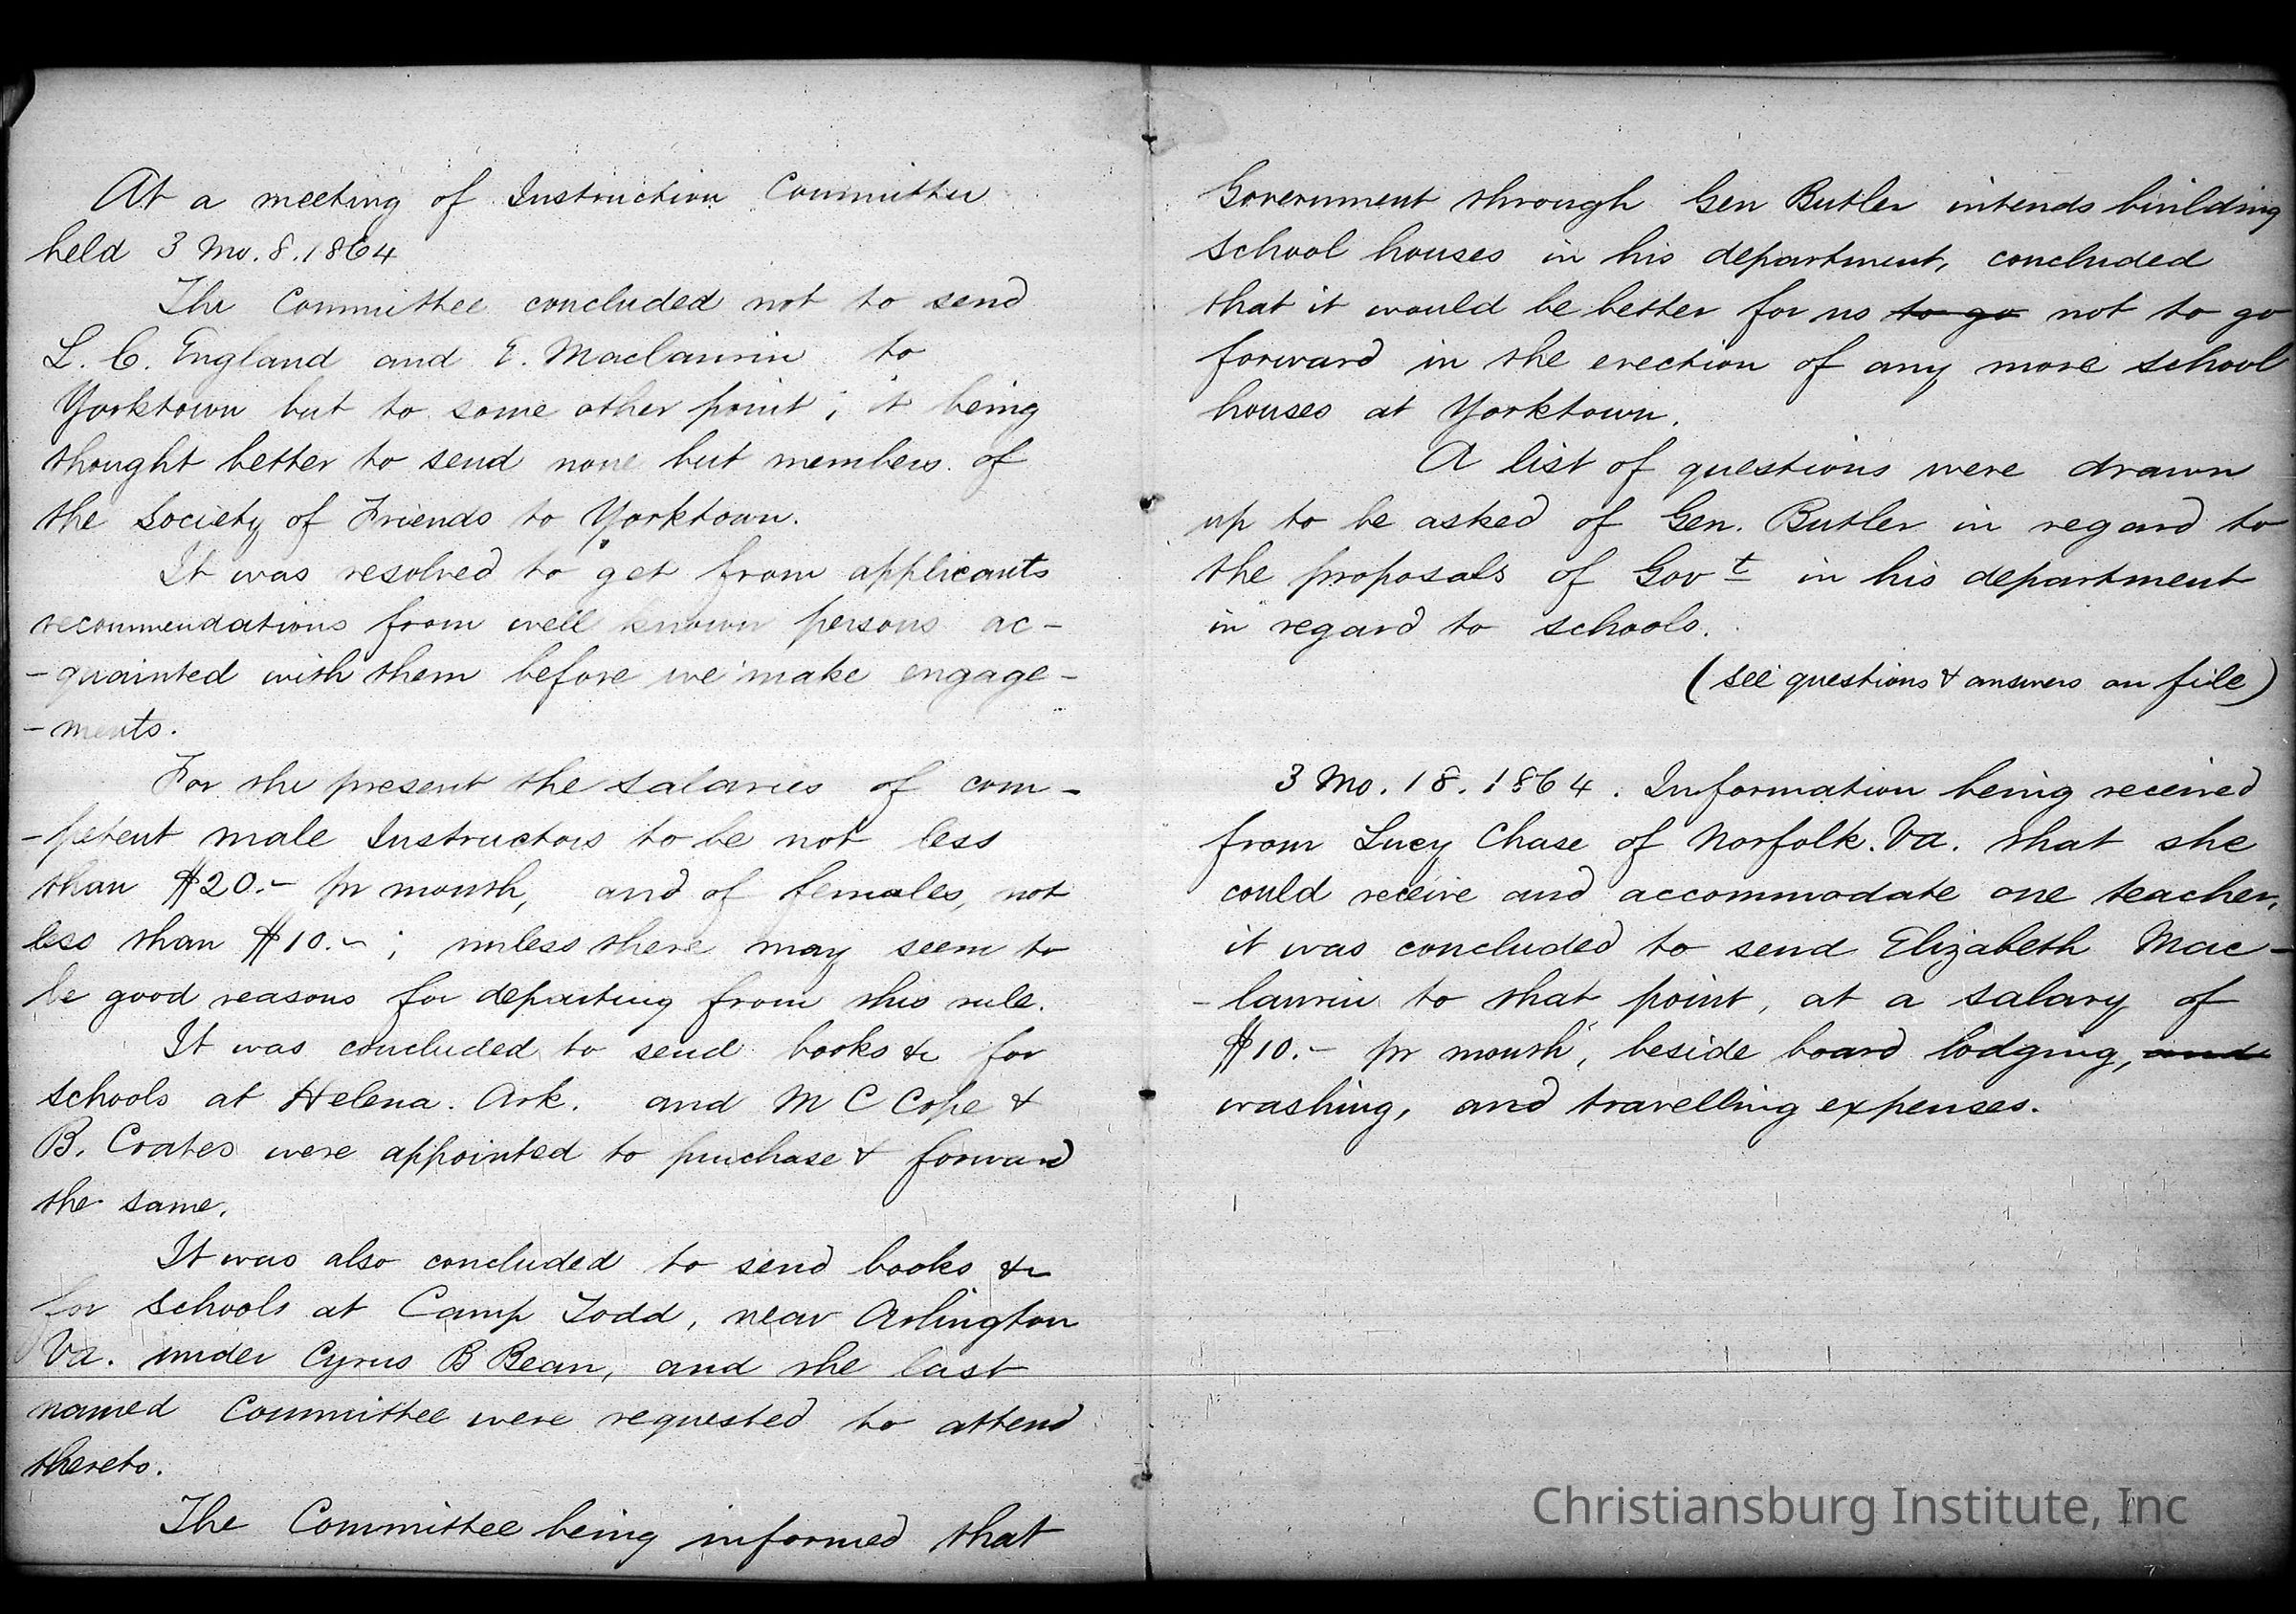 At a meeting of Instruction Committee
held 3 Mo. 8. 1864
The Committee concluded not to send
L. C. England and E. Maclaurin to
Yorktown but to some other point; it being
thought better to send none but members of
the Society of Friends to Yorktown.
It was resolved to get from applicants
recommendations from well known persons ac-
-quainted with them before we make engage-
-ments.
For the present the salaries of com-
-petent male Instructors to be not less
than $20.- pr month, and of females, not
less than $10.-; unless there may seem to
be good reasons for departing from this rule.
It was concluded to send books &c for
schools at Helena. Ark. and M C Cope &
B. Coates were appointed to purchase & forward
the same.
It was also concluded to send books &c
for schools at Camp Todd, near Arlington
Va. under Cyrus B Bean, and the last
named Committee were requested to attend
thereto.
The Committee being informed that
Government through Gen Butler intends building
school houses in his department, concluded
that it would be better for us to go not to go
forward in the erection of any more school
houses at Yorktown.
A list of questions were drawn
up to be asked of Gen. Butler in regard to
the proposals of Govt in his department
in regard to schools.
(see questions & answers on file)
3 Mo. 18. 1864. Information being received
from Lucy Chase of Norfolk. Va. that she
could receive and accommodate one teacher,
it was concluded to send Elizabeth Mac-
-laurin to that point, at a salary of
$10.- pr month, beside board lodging, and
washing, and travelling expenses.
Christiansburg Institute, Inc